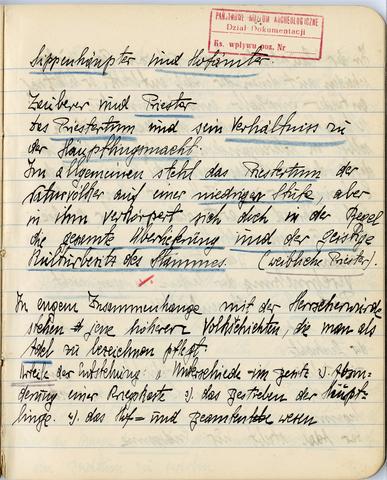 PAŃSTWOWE MUZEUM ARCHEOLOGICZNE
Dział Dokumentacji
Ks. wpływu poz. Nr
Sippenhäupter und Hofämter.
Zauberer und Priester
das Priestertum und sein Verhältniss zu
der Häuptlingsmacht.
Im allgemeinen steht das Priestertum der
Naturvölker auf einer niedrigen Stufe, aber
in ihm verkörpert sich doch in der Regel
die gesamte Überlieferung und der geistige
Kulturbesitz des Stammes. (weibliche Priester).
In engem Zusammenhange mit der Herrscherwürde
stehen jene höheren Volksschichten, die man als
Adel zu bezeichnen pflegt.
der Entstehung: Unterschiede im
einer Kriegerkaste 3). das Bestreben der Häupt-
linge. 4). das Hof- und Beamten wesen